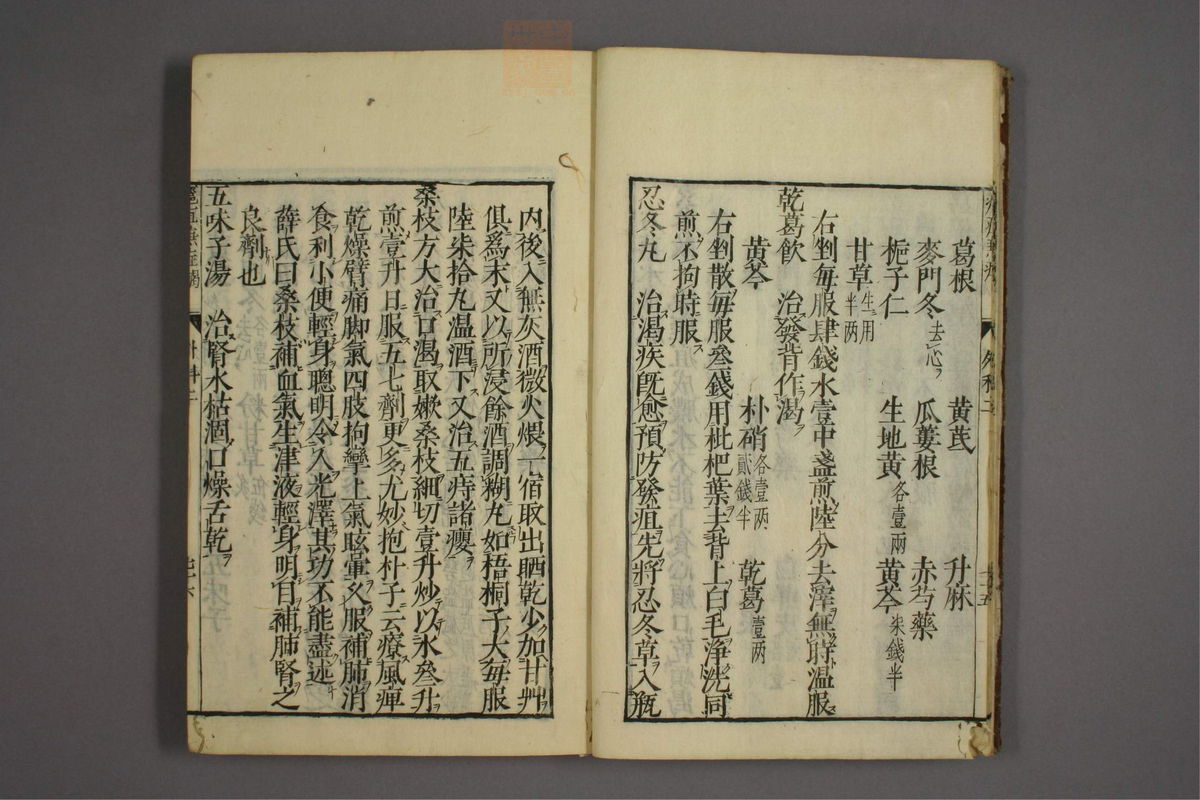 葛根 黄芪 升麻
麥門冬去心 瓜蔞根 赤芍藥
梔子仁 生地黄各壹兩 黄芩柒錢半
甘草生用半两
右剉每服肆錢水壹中盞煎陸分去滓無時温服
乾葛飲 治發背作渴
黄芩 朴硝各壹两貳錢半 乾葛壹两
右剉散每服叁錢用枇杷葉去背上白毛淨洗同
煎不拘時服
忍冬丸 治渴疾既愈預防發疽先將忍冬草入瓶
内後入無灰酒微火煨一宿取出晒乾少加甘艸
俱爲末又以所浸餘酒調糊丸如梧桐子大每服
陸柒拾丸温酒下又治五痔諸瘿
桑枝方大治口渴取嫩桑枝細切壹升炒以水叁升
煎壹升日服五七劑更多尤妙抱朴子云療風痺
乾燥臂痛脚氣四肢拘攣上氣眩暈久服補肺消
食利小便輕身聰明令人光澤其功不能盡述
薛氏曰桑枝補血氣生津液輕身明目補肺腎之
良劑也
五味子湯 治腎水枯涸口燥舌乾